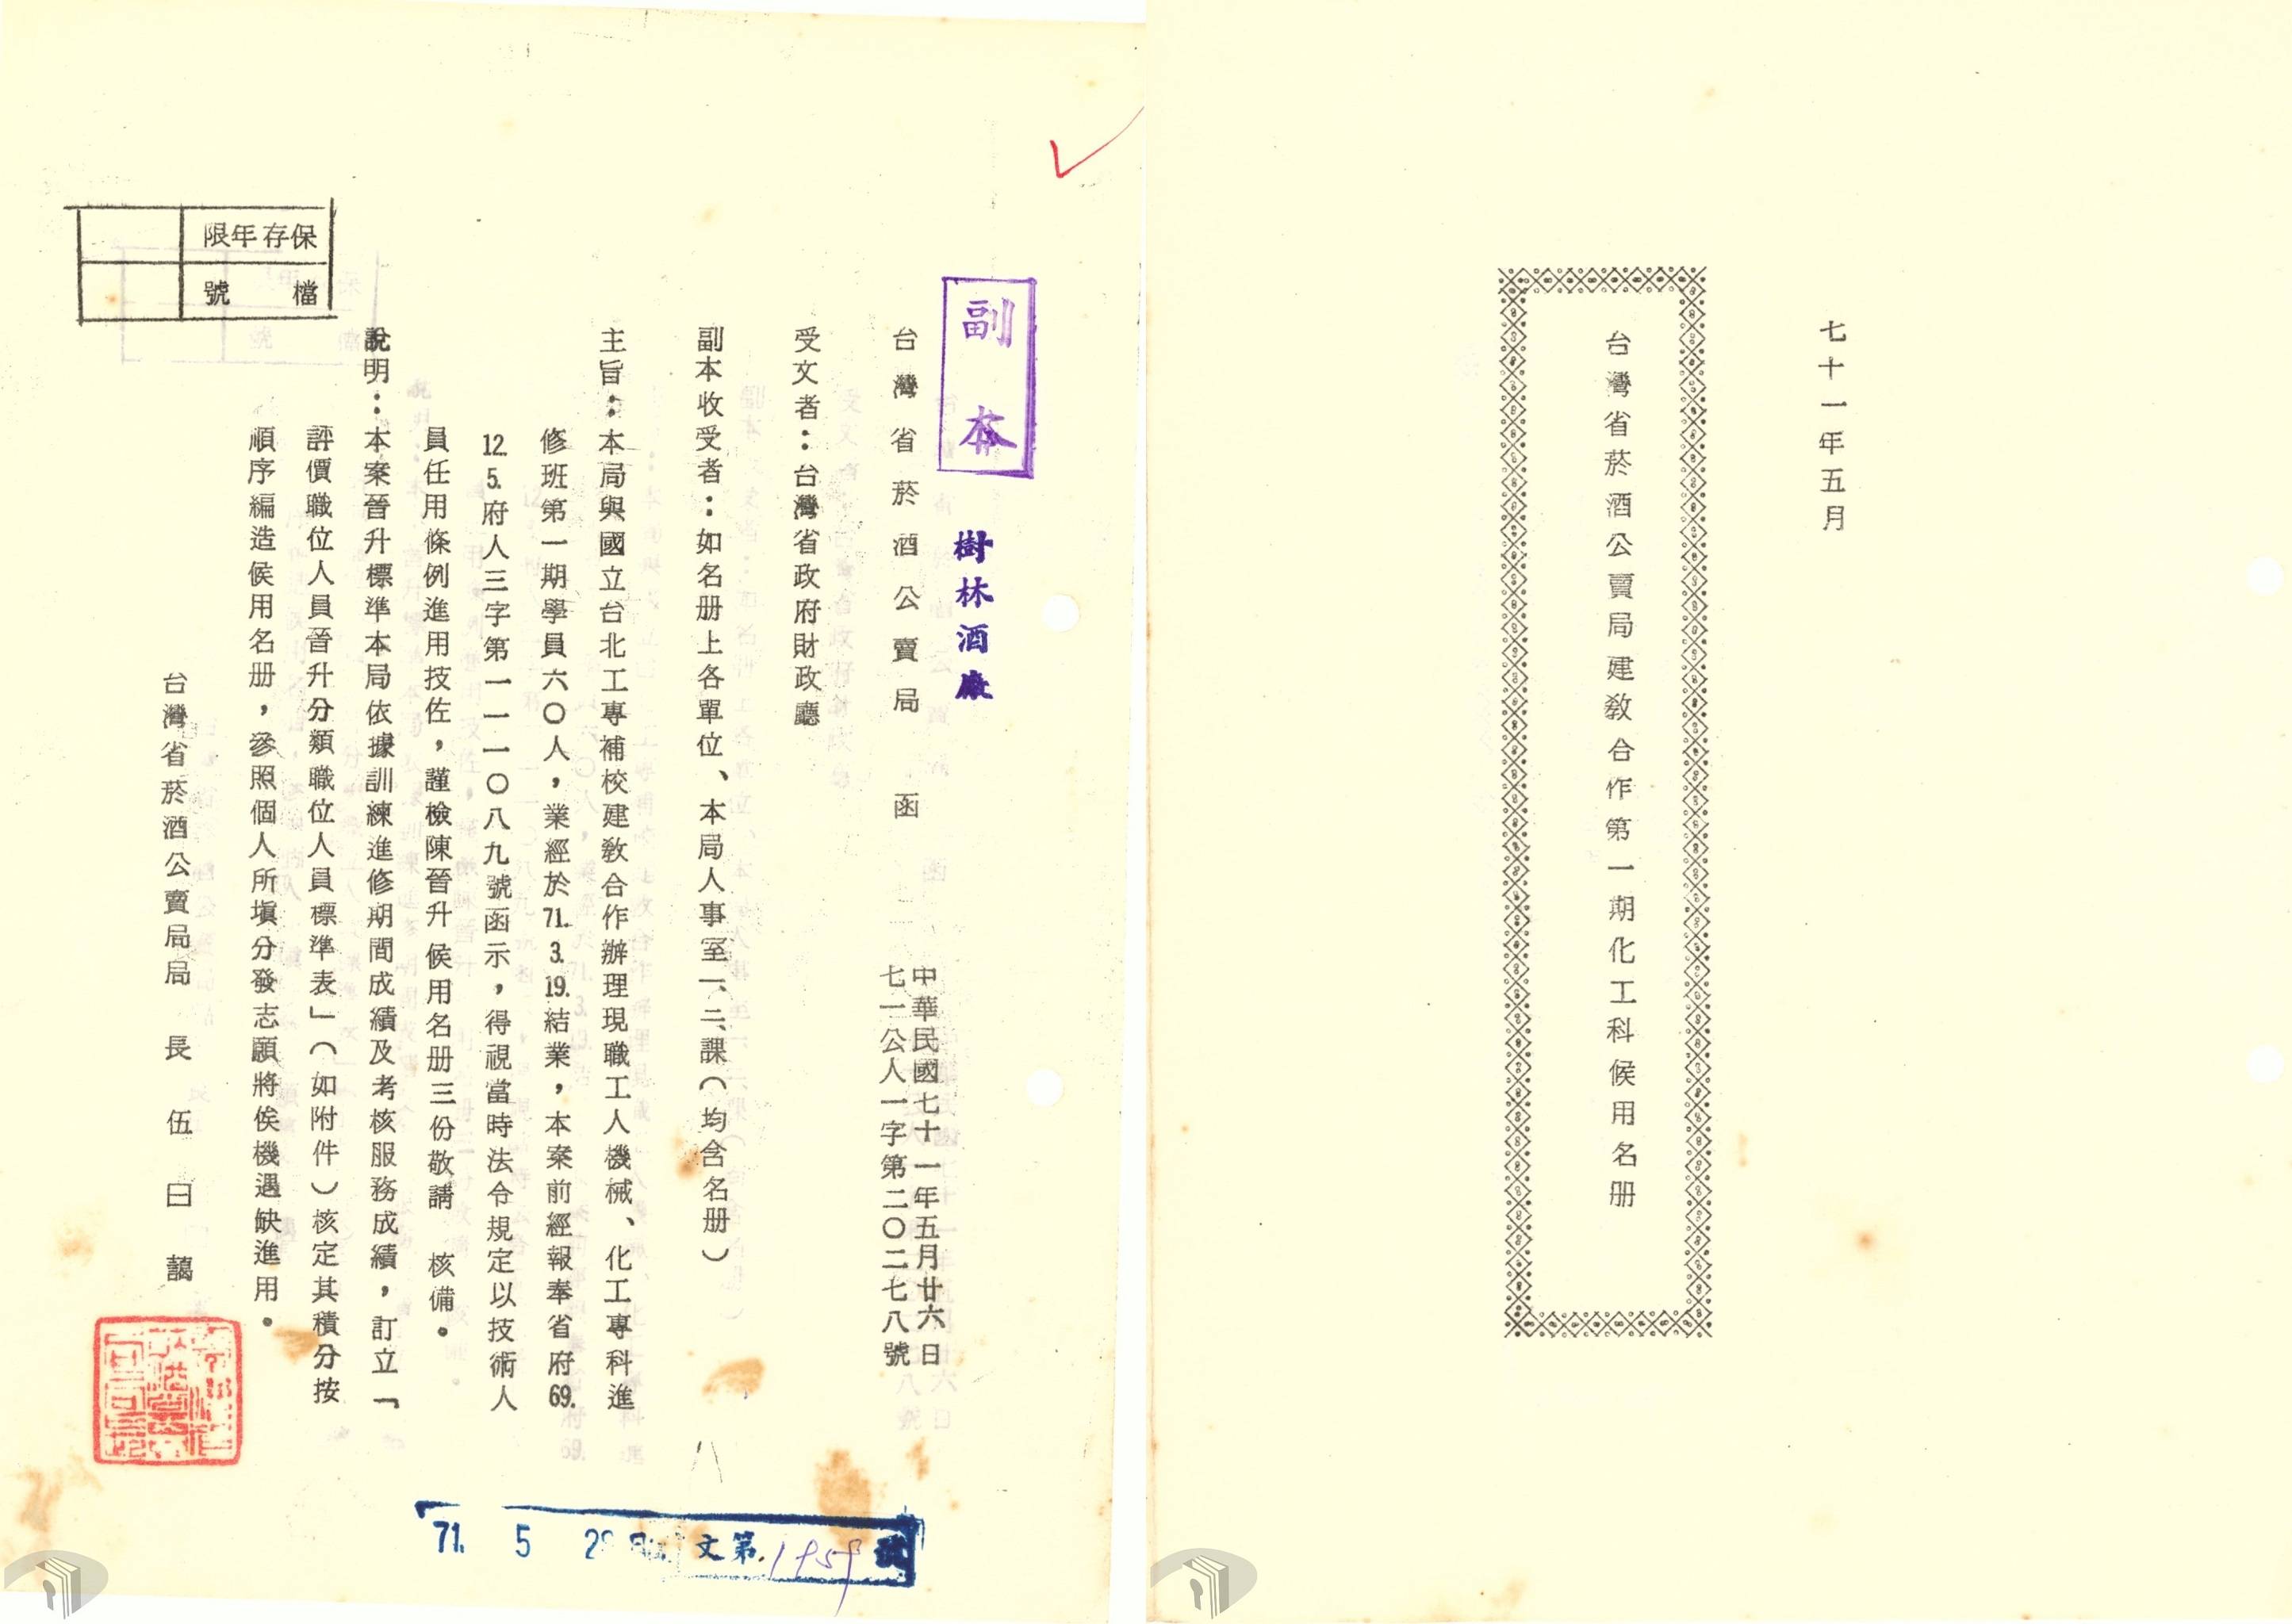 七十一年五月
台灣省菸酒公賣局建教合作第一期化工科候用名册
副本
樹林酒廠
台灣省菸酒公賣局 函
中華民國七十一年五月廿六日
七一公人一字第二〇二七八號
受文者：台灣省政府財政廳
副本收受者：如名册上各單位、本局人事室一、二、課（均含名册）
主旨：本局與國立台北工專補校建教合作辦理現職工人機械、化工專科進
修班第一期學員六〇人，業經於71.3.19.結業，本案前經報奉省府69.
12.5.府人三字第一一一〇八九號函示，得視當時法令規定以技術人
員任用條例進用技佐，謹檢陳晉升候用名册三份敬請 核備。
說明：本案晉升標準本局依據訓練進修期間成績及考核服務成績，訂立「
評價職位人員晉升分類職位人員標準表」（如附件）核定其積分按
順序編造候用名册，參照個人所填分發志願將俟機遇缺進用。
台灣省菸酒公賣局局長 伍曰藹
保存年限
檔號
71. 5 28 文第 1959 號